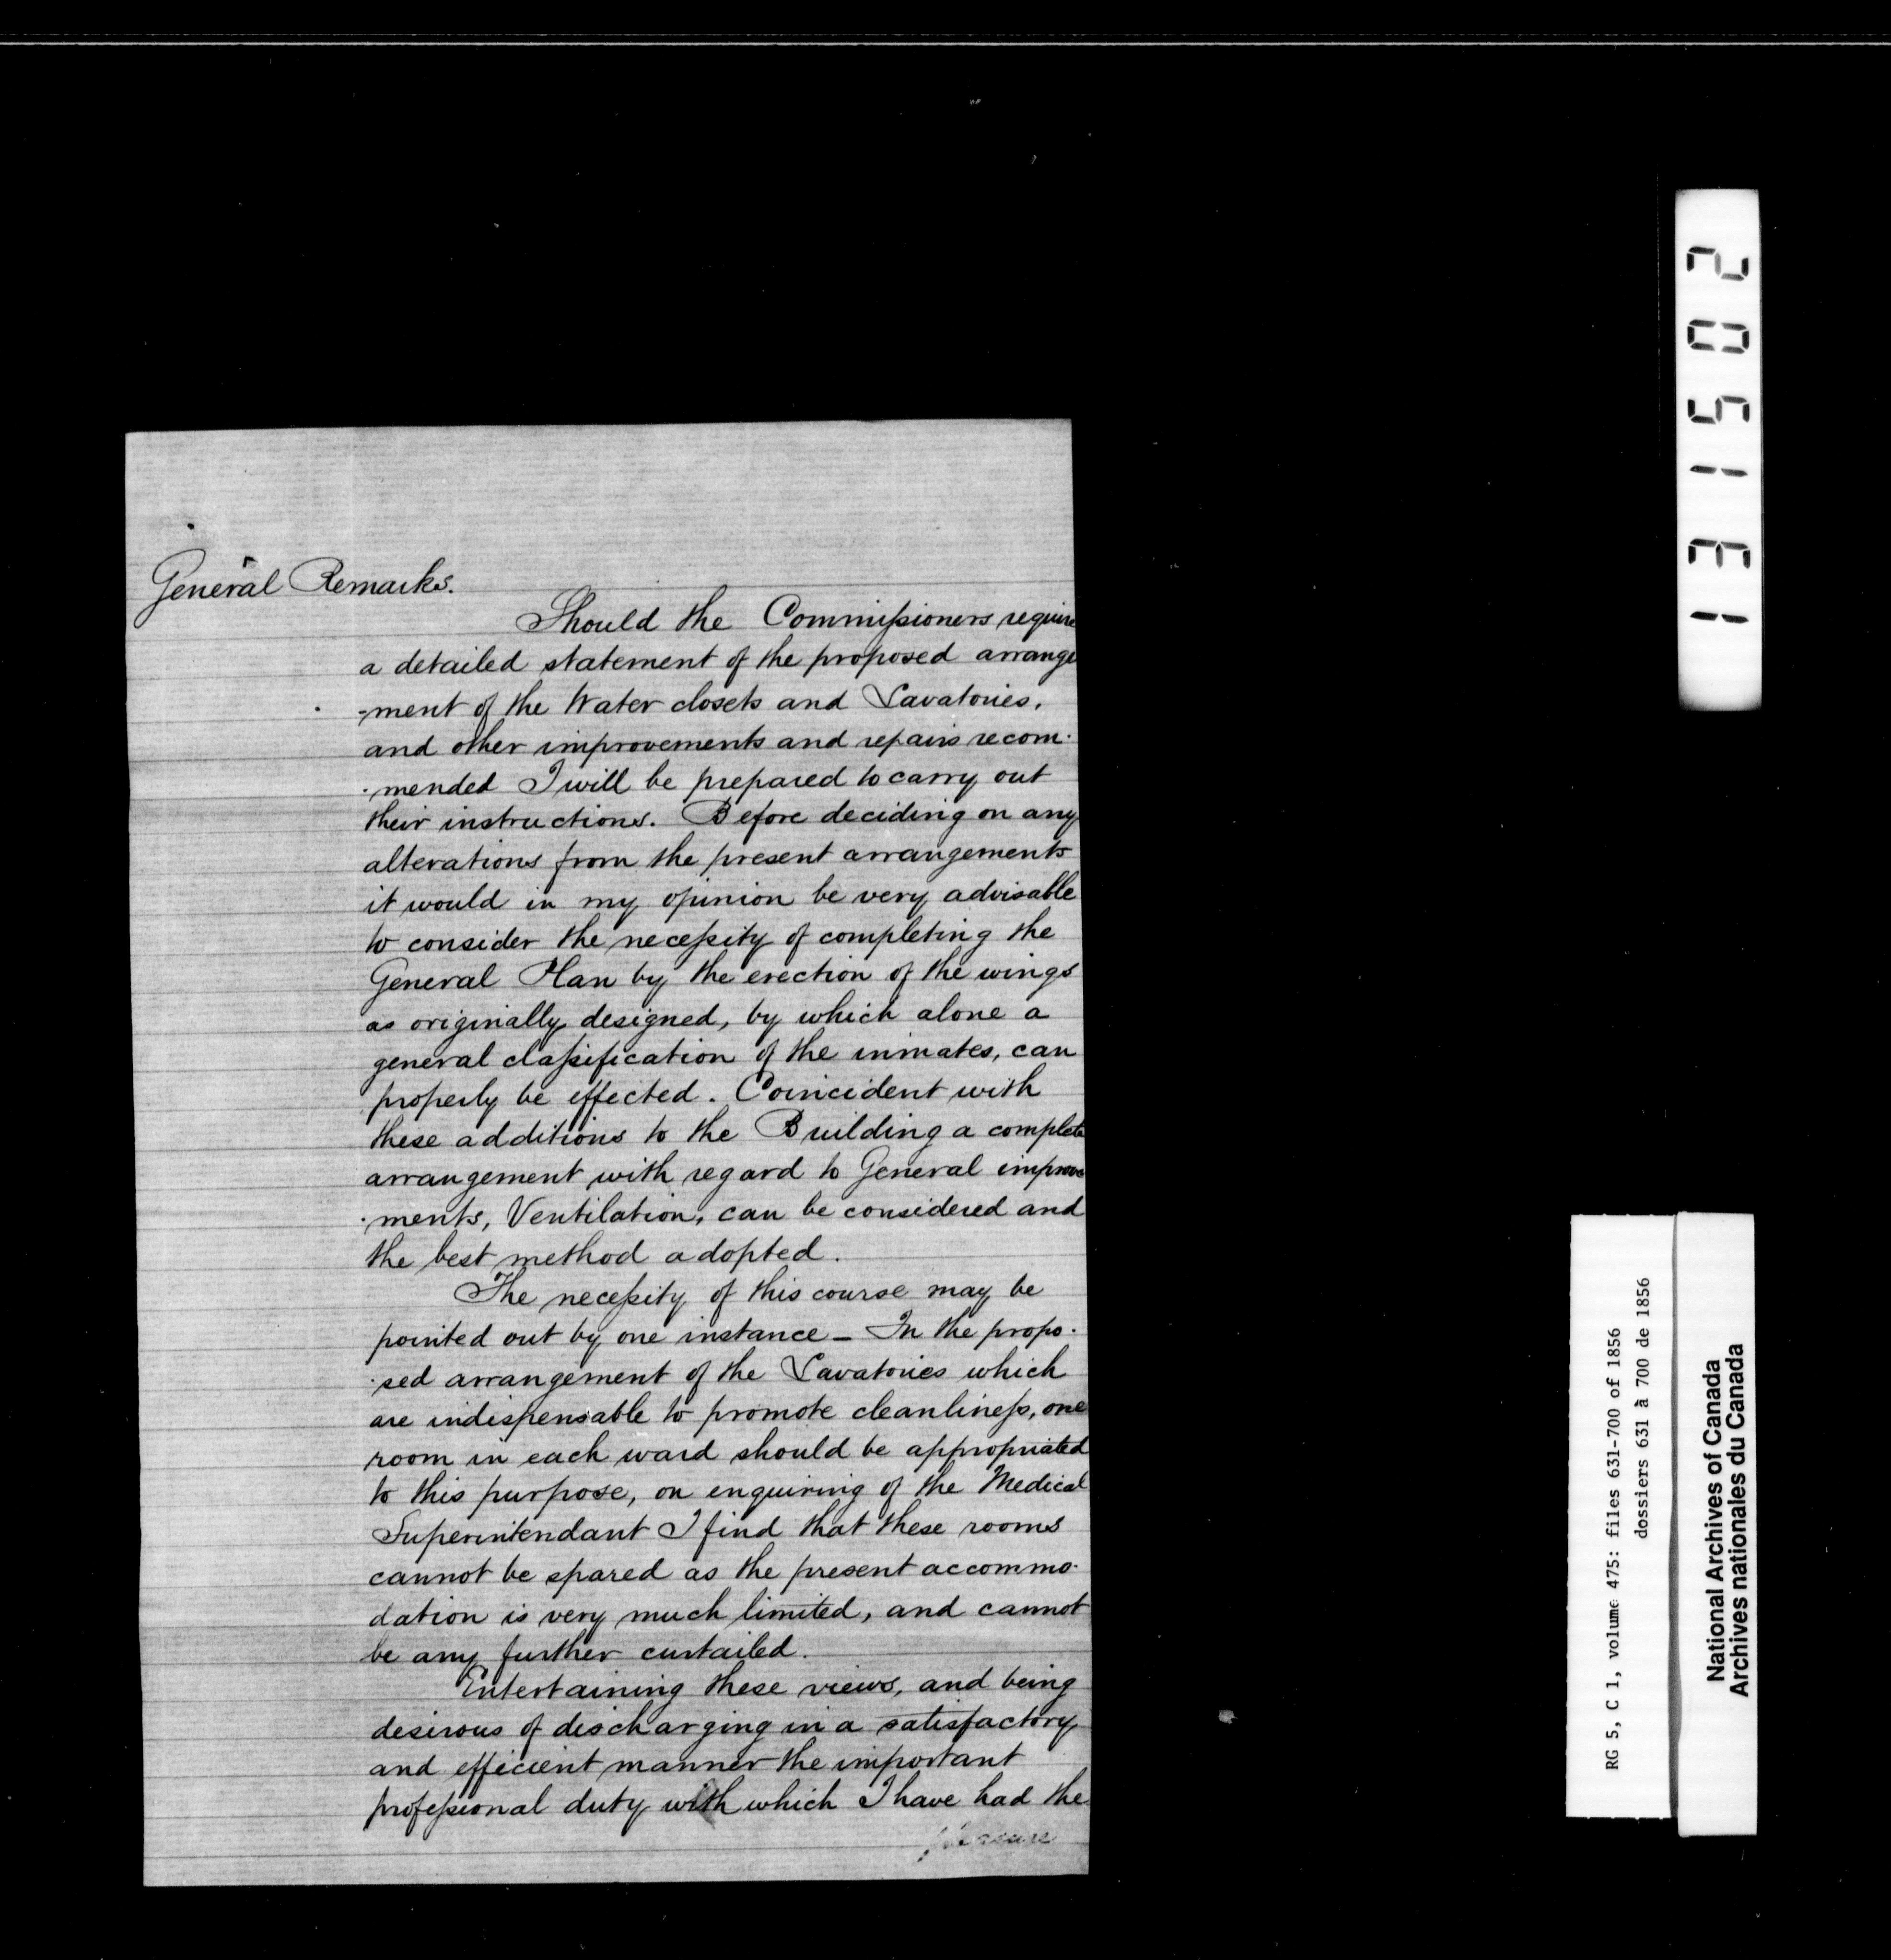 General Remarks.
Should the Commissioners require
a detailed statement of the proposed arrange
-ment of the Water closets and Lavatories,
and other improvements and repairs recom-
-mended I will be prepared to carry out
their instructions. Before deciding on any
alterations from the present arrangements
it would in my opinion be very advisable
to consider the necessity of completing the
General Plan by the erection of the wings
as originally designed, by which alone a
general classification of the inmates, can
properly be effected. Coincident with
these additions to the Building a complete
arrangement with regard to General improve
-ments, Ventilation, can be considered and
the best method adopted.
The necessity of this course may be
pointed out by one instance - In the propo-
-sed arrangement of the Lavatories which
are indispensable to promote cleanliness, one
room in each ward should be appropriated
to this purpose, on enquiring of the Medical
Superintendant I find that these rooms
cannot be spared as the present accommo-
dation is very much limited, and cannot
be any further curtailed.
Entertaining these views, and being
desirous of discharging in a satisfactory
and efficient manner the important
professional duty with which I have had the
pleasure
131502
RG 5, C 1, volume 475: files 631-700 of 1856
dossiers 631 à 700 de 1856
National Archives of Canada
Archives nationales du Canada